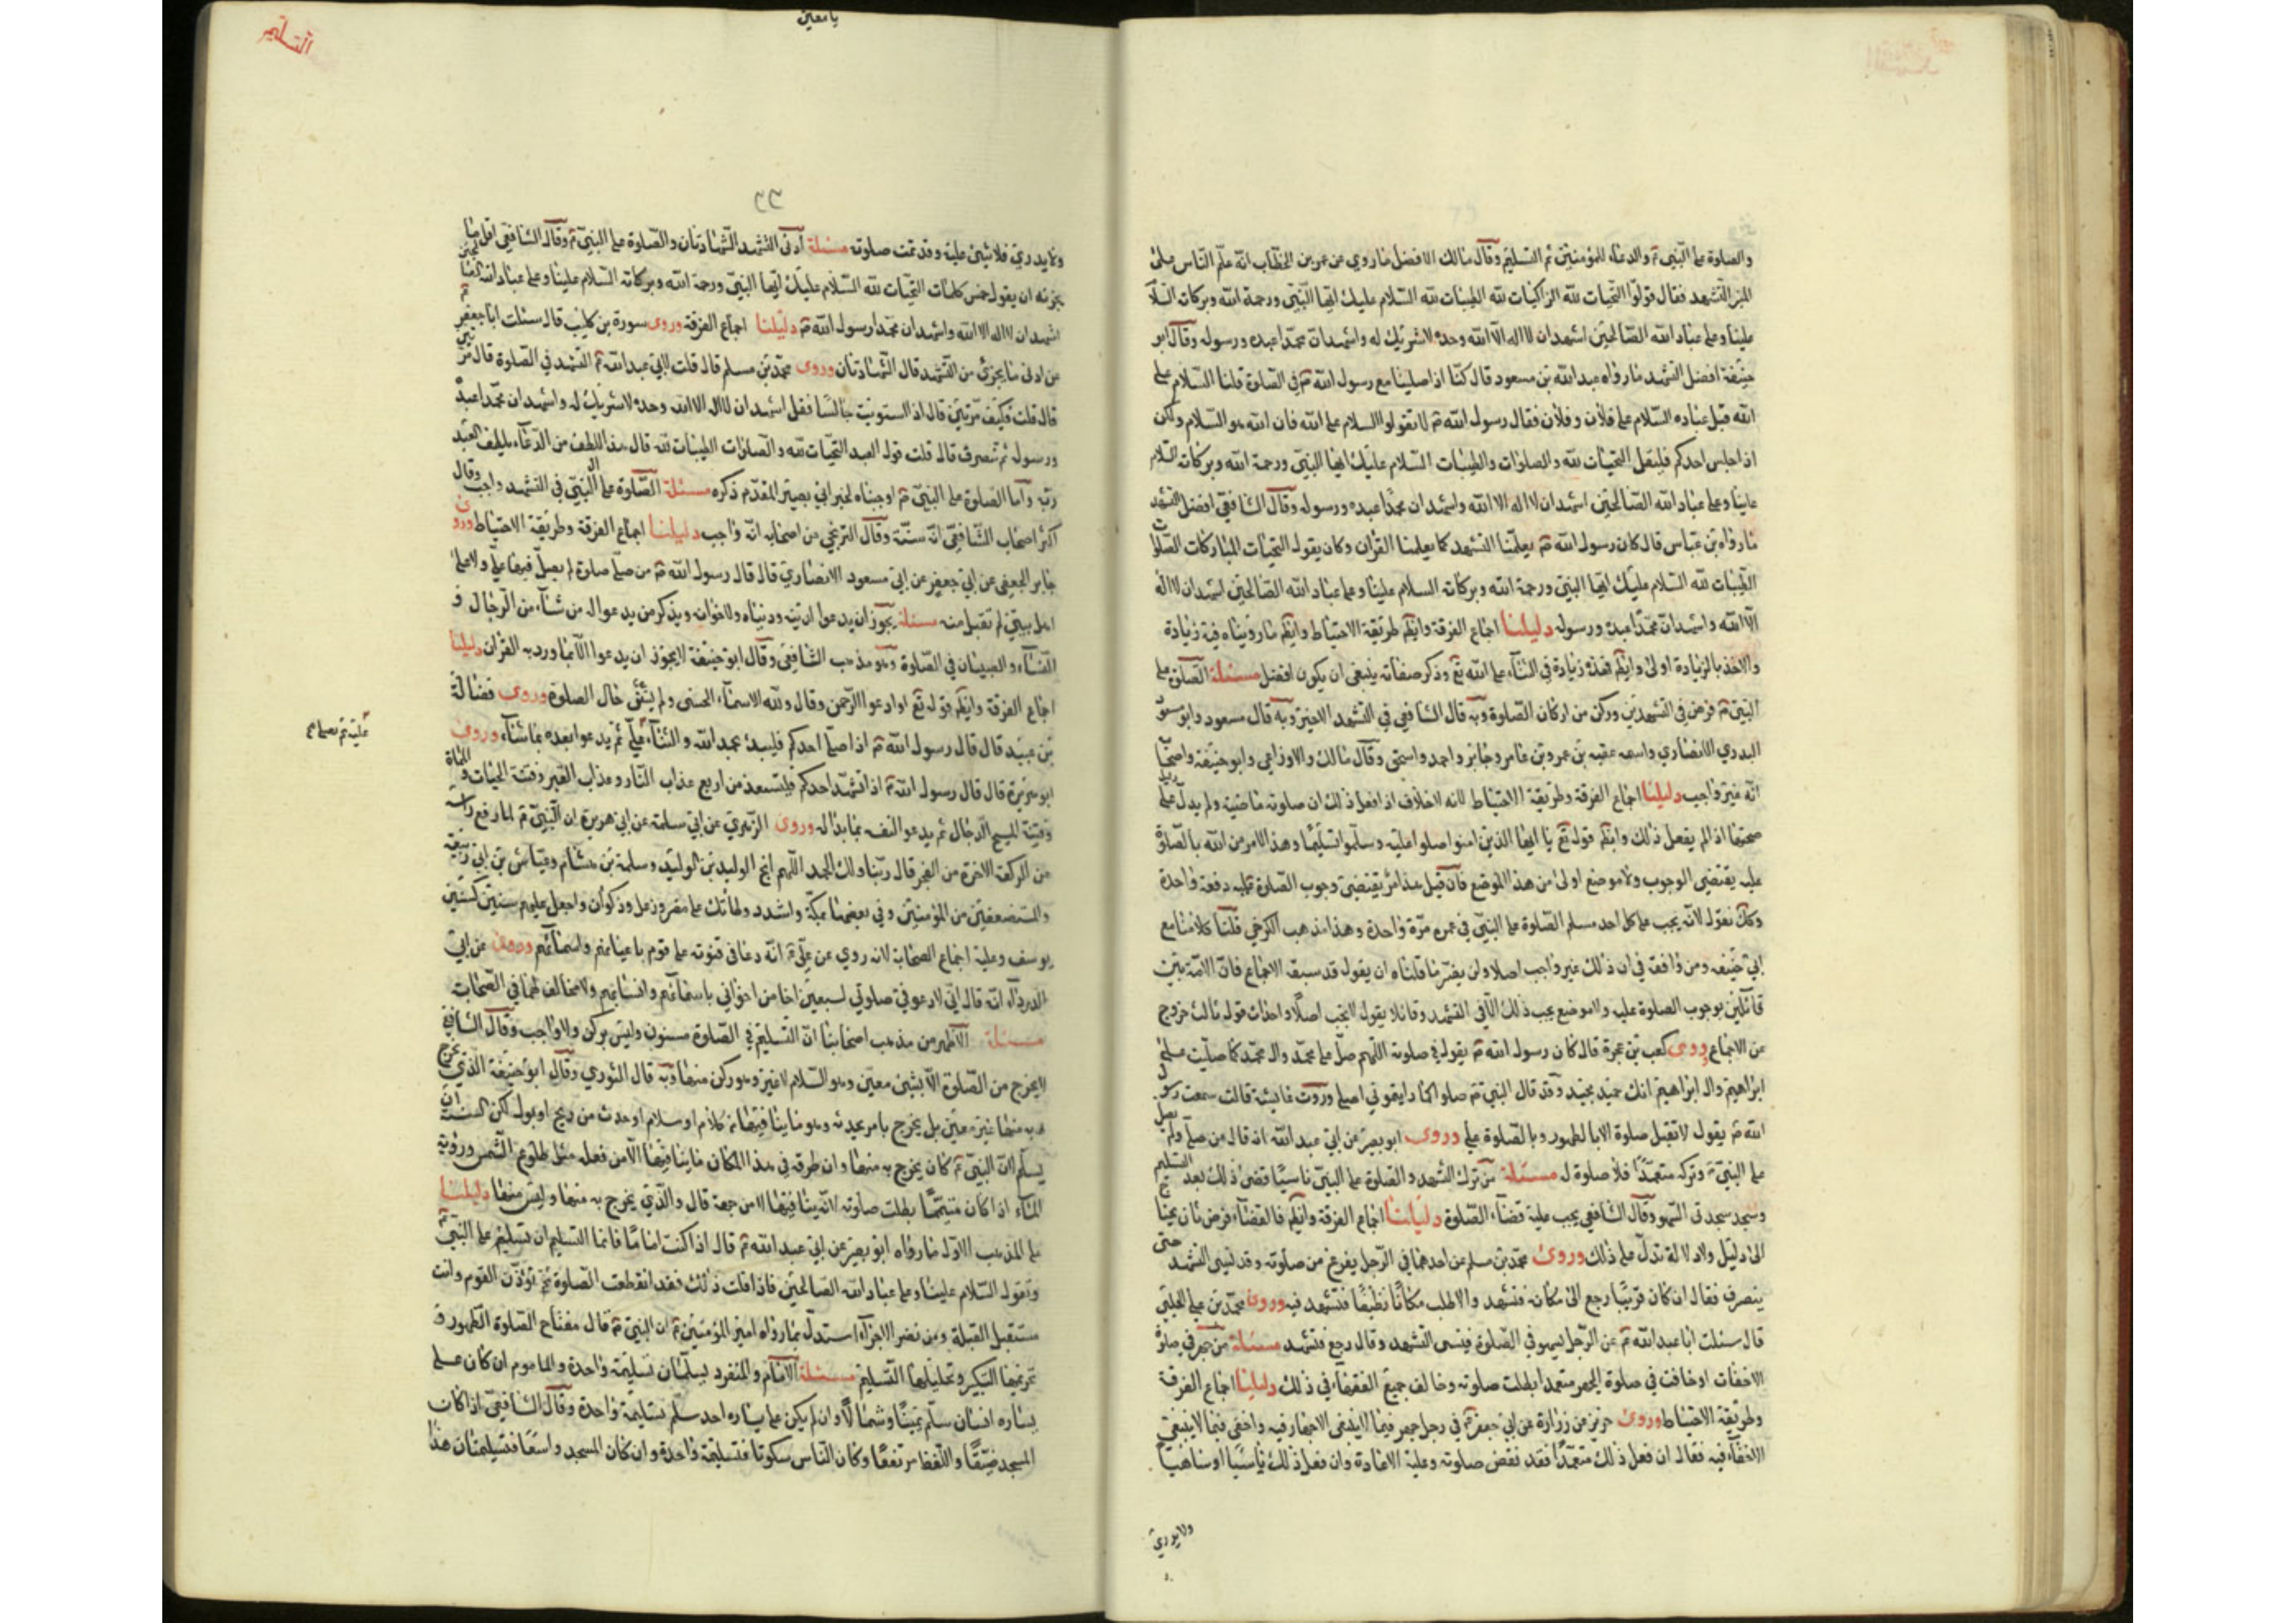 والصلوة على النبي ۴ والدعاء للمؤمنين ثم التسليم وقال مالك الافضل ما روي عن عمر بن الخطاب انه علم الناس على
المنبر التشهد فقال قولوا التحيات لله الزاكيات لله الطيبات لله السلام عليك ايها النبي ورحمة الله وبركاته السلا
علينا وعلى عباد الله الصالحين اشهد ان لا اله الا الله وحده لا شريك له واشهد ان محمدا عبده ورسوله وقال ابو
حنيفة افضل التشهد ما رواه عبد الله بن مسعود قال كنا اذا صلينا مع رسول الله ۴ في الصلوة قلنا السلام على
الله قبل عباده السلام على فلان وفلان فقال رسول الله ۴ لا تقولوا السلام على الله فان الله هو السلام ولكن
اذا جلس احدكم فليقل التحيات لله والصلوات والطيبات السلام عليك ايها النبي ورحمة الله وبركاته السلام
علينا وعلى عباد الله الصالحين اشهد ان لا اله الا الله واشهد ان محمدا عبده ورسوله وقال الشافعي افضل التشهد
ما رواه بن عباس قال كان رسول الله ۴ يعلمنا التشهد كما يعلمنا القران وكان يقول التحيات المباركات الصلوات
الطيبات لله السلام عليك ايها النبي ورحمة الله وبركاته السلام علينا وعلى عباد الله الصالحين اشهد ان لا اله
الا الله واشهد ان محمدا عبده ورسوله دليلنا اجماع الفرقة وايضا طريقة الاحتياط وايضا ما رويناه فيه زيادة
والاخذ بالزيادة اولى وايضا فهذه زيادة في الثناء على الله تع وذكر صفاته ينبغي ان يكون افضل مسئلة الصلوة على
النبي ۴ فرض في التشهدين وركن من اركان الصلوة وبه قال الشافعي في التشهد الاخير وبه قال مسعود وابو مسعود
البدري الانصاري واسمه عقبه بن عمرو بن عامر وجابر واحمد واسحق وقال مالك والاوزاعي وابو حنيفة واصحا
انه غير واجب دليلنا اجماع الفرقة وطريقة الاحتياط لانه لا خلاف اذا فعل ذلك ان صلوته ماضية ولم يدل دليل على
صحتها اذا لم يفعل ذلك وايضا قوله تع يا ايها الذين امنوا صلوا عليه وسلموا تسليما وهذا الامر من الله بالصلوة
عليه يقتضي الوجوب ولا موضع اولى من هذا الموضع فان قيل هذا امر يقتضي وجوب الصلوة عليه دفعة واحدة
وكك نقول لانه يجب على كل احد مسلم الصلوة على النبي في عمره مرة واحدة وهذا مذهب الكرخي قلنا كلامنا مع
ابي حنيفه ومن وافقه في ان ذلك غير واجب اصلا ولن يضرنا قلناه ان يقول قد سبقه الاجماع فان الامة بين
قائلين بوجوب الصلوة عليه ولا موضع يجب ذلك الا في التشهد وقائلا يقول لا تجب اصلا واحداث قول ثالث خروج
عن الاجماع وروى كعب بن عجرة قال كان رسول الله ۴ يقول في صلوته اللهم صل على محمد وال محمد كما صليت على
ابراهيم وال ابراهيم انك حميد مجيد وقد قال النبي ۴ صلوا كما رايتموني اصلي وروت عايشة قالت سمعت رسول
الله ۴ يقول لا تقبل صلوة الا بالطهور وبالصلوة علي وروى ابو بصير عن ابي عبد الله انه قال من صلى ولم يصل
على النبي ۴ وتركه متعمدا فلا صلوة له مسئلة من ترك التشهد والصلوة على النبي ناسيا قضى ذلك بعد التسليم
وسجد سجدتي السهو وقال الشافعي يجب عليه قضاء الصلوة دليلنا اجماع الفرقة وايضا فالقضاء فرض ثان يحتاج
الى دليل ولا دلالة تدل على ذلك وروى محمد بن مسلم عن احدهما في الرجل يفرغ من صلوته وقد نسي التشهد حتى
ينصرف فقال ان كان قريبا رجع الى مكانه فتشهد والا طلب مكانا نظيفا فتشهد فيه وروى محمد بن علي الحلبي
قال سئلت ابا عبد الله ۴ عن الرجل يسهو في الصلوة فينسى التشهد وقال رجع فتشهد مسئلة من جهر في صلوة
الاخفات او خافت في صلوة الجهر متعمدا بطلت صلوته وخالف جميع الفقهاء في ذلك دليلنا اجماع الفرقة
وطريقة الاحتياط وروى حريز عن زرارة عن ابي جعفر ۴ في رجل جهر فيما لا ينبغي الاجهار فيه واخفى فيما لا ينبغي
الاخفاء فيه فقال ان فعل ذلك متعمدا فقد نقض صلوته وعليه الاعادة وان فعل ذلك ناسيا او ساهيا
ولا يدري
التسليم
يا معين
ولا يدري فلا شيئ عليه وقد تمت صلوته مسئلة ادنى التشهد الشهادتان والصلوة على النبي ۴ وقال الشافعي اقل ما
يجزئه ان يقول خمس كلمات التحيات لله السلام عليك ايها النبي ورحمة الله وبركاته السلام علينا وعلى عباد الله الصالحين
اشهد ان لا اله الا الله واشهد ان محمدا رسول الله ۴ دليلنا اجماع الفرقة وروى سورة بن كليب قال سئلت ابا جعفر ۴
عن ادنى ما يجزي من التشهد قال الشهادتان وروى محمد بن مسلم قال قلت لابي عبد الله ۴ التشهد في الصلوة قال مرتين
قال قلت فكيف مرتين قال اذا استويت جالسا فقل اشهد ان لا اله الا الله وحده لا شريك له واشهد ان محمدا عبده
ورسوله ثم تنصرف قال قلت قول العبد التحيات لله والصلوات الطيبات لله قال هذا اللطف من الدعاء يلطف العبد
ربه واما الصلوة على النبي ۴ اوجبناه لخبر ابي بصير المقدم ذكره مسئلة الصلوة على النبي في التشهد واجب وقال
اكثر اصحاب الشافعي انه سنة وقال التربخي من اصحابه انه واجب دليلنا اجماع الفرقة وطريقة الاحتياط وروى
جابر الجعفي عن ابي جعفر عن ابي مسعود الانصاري قال قال رسول الله ۴ من صلى صلوة لم يصل فيها علي ولا على
اهل بيتي لم تقبل منه مسئلة يجوز ان يدعوا لدينه ودنياه ولاخوانه ويذكر من يدعو له من شاء من الرجال و
النساء والصبيان في الصلوة وهو مذهب الشافعي وقال ابو حنيفة لا يجوز ان يدعوا الا بما ورد به القران دليلنا
اجماع الفرقة وايضا قوله تع او ادعوا الرحمن وقال ولله الاسماء الحسنى ولم يستثنى حال الصلوة وروى فضالة
بن عبيد قال قال رسول الله ۴ اذا صلى احدكم فليبدء بحمد الله والثناء عليه ثم يدعو بعده بما شاء وروى
ابو هريرة قال قال رسول الله ۴ اذا تشهد احدكم فليتعوذ من اربع عذاب النار وعذاب القبر وفتنة الحيات والمماة
وفتنة المسيح الدجال ثم يدعو لنفسه بما بدا له وروى الزهري عن ابي سلمة عن ابي هريرة ان النبي ۴ لما رفع راسه
من الركعة الاخرة من الفجر قال ربنا ولك الحمد اللهم انج الوليد بن الوليد وسلمة بن هشام وعياش بن ابي ربيعه
والمستضعفين من المؤمنين وفي بعضها بمكة واشدد وطأتك على مضر ورعل وذكوان واجعل عليهم سنين كسنين
يوسف وعليه اجماع الصحابة لانه روي عن علي ۴ انه دعا في قنوته على قوم باعيانهم واسمائهم وروى عن ابي
الدرداء انه قال اني لادعو في صلوتي لسبعين اخا من اخواني باسمائهم وانسابهم ولا مخالف لهما في الصحابة
مسئلة الاظهر من مذهب اصحابنا ان التسليم في الصلوة مسنون وليس بركن ولا واجب وقال الشافعي
لا يخرج من الصلوة الا بشيئ معين وهو السلام لا غير وهو ركن منها وبه قال الثوري وقال ابو حنيفة الذي يخرج
به منها غير معين بل يخرج بامر يحدثه وهو ما ينافيها من كلام او سلام او حدث من ريح او بول لكن السنة ان
يسلم لان النبي ۴ كان يخرج به منها وان طرقه في هذا المكان ما ينافيها لا من فعله مثل طلوع الشمس ورؤية
الماء اذا كان متيمما بطلت صلوته لانه ينافيها لا من جهة قال والذي يخرج به منها وليس منها دليلنا
على المذهب الاول ما رواه ابو بصير عن ابي عبد الله ۴ قال اذا كنت اماما فانما التسليم ان تسلم على النبي ۴
وتقول السلام علينا وعلى عباد الله الصالحين فاذا قلت ذلك فقد انقطعت الصلوة ثم تؤذن القوم وانت
مستقبل القبلة ومن نصر الاجزاء استدل بما رواه امير المؤمنين ۴ ان النبي ۴ قال مفتاح الصلوة الطهور و
تحريمها التكبير وتحليلها التسليم مسئلة الامام والمنفرد يسلمان تسليمة واحدة والماموم ان كان على
يساره انسان سلم يمينا وشمالا وان لم يكن على يساره احد سلم تسليمة واحدة وقال الشافعي اذا كان
المسجد ضيقا واللغط مرتفعا وكان الناس سكوتا فتسليمة واحدة وان كان المسجد واسعا فتسليمتان هذا